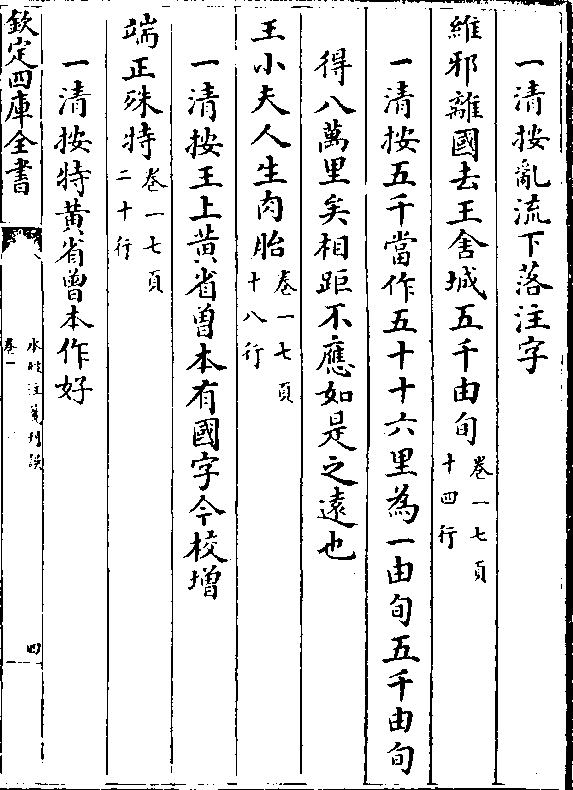 一清按亂流下落注字
維邪離國去王舍城五千由旬卷一七頁十四行
一清按五千當作五十十六里為一由旬五千由旬
得八萬里矣相距不應如是之遠也
王小夫人生肉胎卷一七頁十八行
一清按王上黃省曾本有國字今校增
端正殊特卷一七頁二十行
一清按特黃省曾本作好
欽定四庫全書
水經注箋刊誤
卷一
四